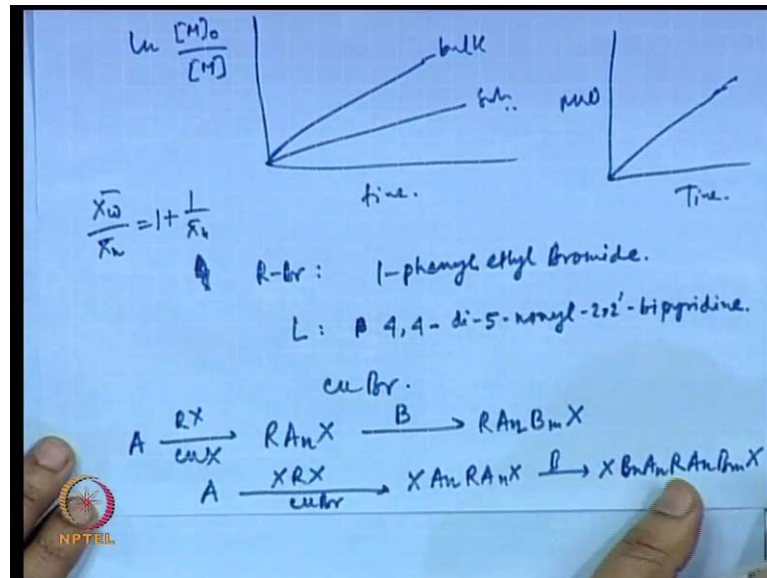 ln [M]₀ / [M]
bulk
Soln.
time.
MWD
Time.
X̄w / X̄n = 1 + 1 / X̄n
R-Br : 1-phenyl ethyl Bromide.
L : 4,4-di-5-nonyl-2,2'-bipyridine.
CuBr.
A —RX / CuX→ RAnX —B→ RAnBmX
A —XRX / CuBr→ XAnRAnX —B→ XBmAnRAnBmX
NPTEL